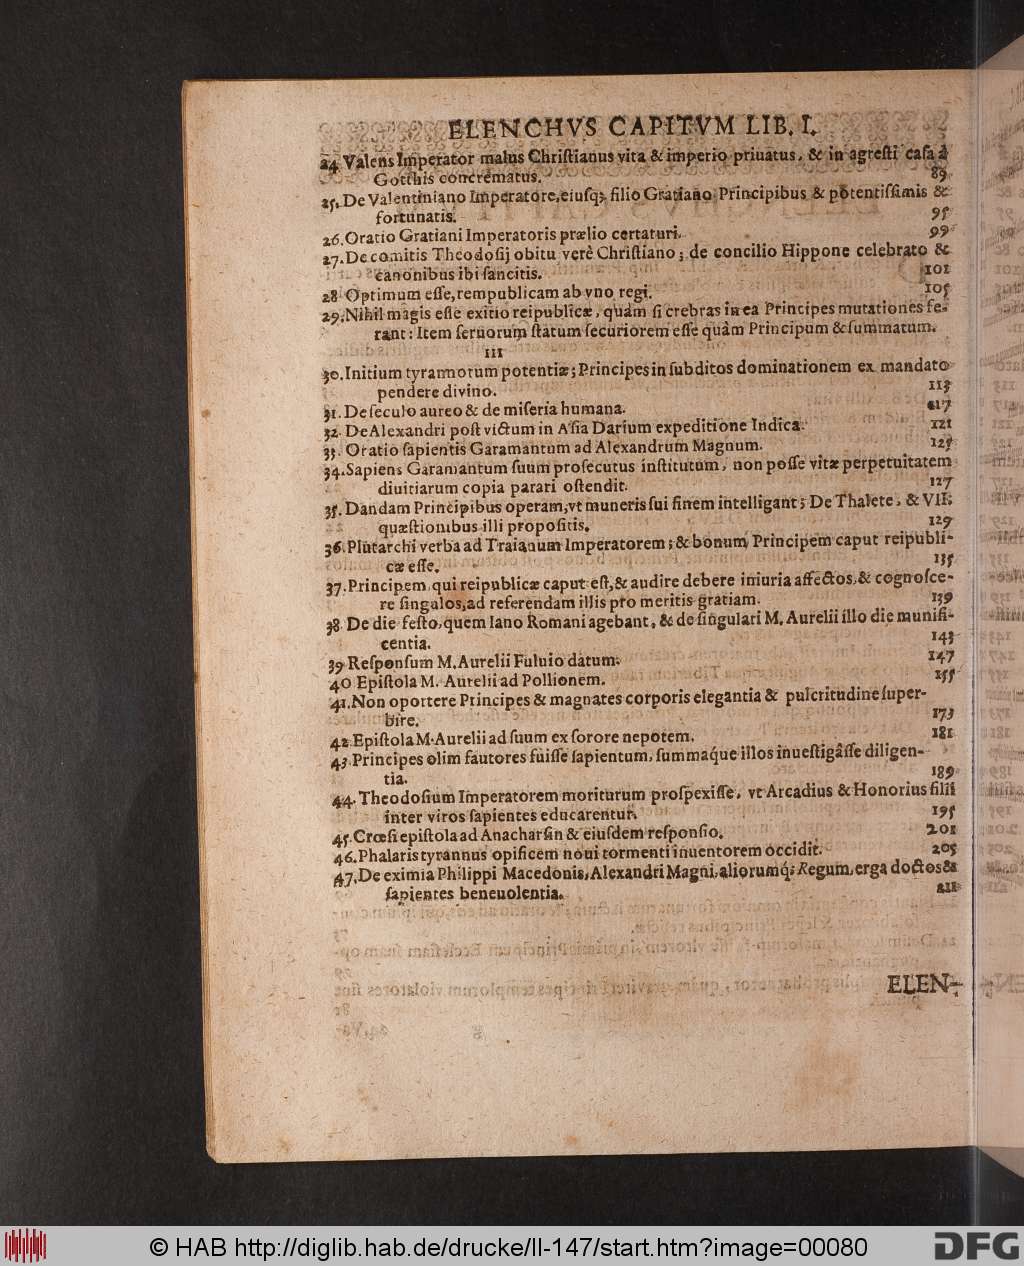 ELENCHVS CAPITVM LIB. I.
24. Valens Imperator malus Chriſtianus vita & imperio priuatus, & in agreſti caſa à
Gotthis concrematus. 89
25. De Valentiniano Imperatore, eiuſq; filio Gratiano Principibus & potentiſſimis &
fortunatis. 95
26. Oratio Gratiani Imperatoris prælio certaturi. 99
27. De comitis Theodoſij obitu verè Chriſtiano; de concilio Hippone celebrato &
canonibus ibi ſancitis. 101
28 Optimum eſſe, rempublicam ab vno regi. 105
29. Nihil magis eſſe exitio reipublicæ, quàm ſi crebras in ea Principes mutationes fe-
rant: Item ſeruorum ſtatum ſecuriorem eſſe quàm Principum & ſummatum.
111
30. Initium tyrannorum potentiæ; Principes in ſubditos dominationem ex mandato
pendere diuino. 113
31. De ſeculo aureo & de miſeria humana. 117
32. De Alexandri poſt victum in Aſia Darium expeditione Indica. 121
33. Oratio ſapientis Garamantum ad Alexandrum Magnum. 125
34. Sapiens Garamantum ſuum proſecutus inſtitutum, non poſſe vitæ perpetuitatem
diuitiarum copia parari oſtendit. 127
35. Dandam Principibus operam, vt muneris ſui finem intelligant; De Thalete, & VII.
quæſtionibus illi propoſitis. 129
36. Plutarchi verba ad Traianum Imperatorem; & bonum Principem caput reipubli-
cæ eſſe. 135
37. Principem, qui reipublicæ caput eſt, & audire debere iniuria affectos, & cognoſce-
re ſingulos, ad referendam illis pro meritis gratiam. 139
38. De die feſto, quem Iano Romani agebant, & de ſingulari M. Aurelii illo die munifi-
centia. 143
39 Reſponſum M. Aurelii Fuluio datum. 147
40 Epiſtola M. Aurelii ad Pollionem. 155
41. Non oportere Principes & magnates corporis elegantia & pulcritudine ſuper-
bire. 173
42 Epiſtola M. Aurelii ad ſuum ex ſorore nepotem. 181
43. Principes olim fautores fuiſſe ſapientum, ſummaq́ue illos inueſtigâſſe diligen-
tia. 189
44. Theodoſium Imperatorem moriturum proſpexiſſe, vt Arcadius & Honorius filii
inter viros ſapientes educarentur. 195
45. Crœſi epiſtola ad Anacharſin & eiuſdem reſponſio. 201
46. Phalaris tyrannus opificem noui tormenti inuentorem occidit. 205
47. De eximia Philippi Macedonis, Alexandri Magni, aliorumq́; Regum, erga doctos &
ſapientes beneuolentia. 211
ELEN-
© HAB http://diglib.hab.de/drucke/ll-147/start.htm?image=00080
DFG